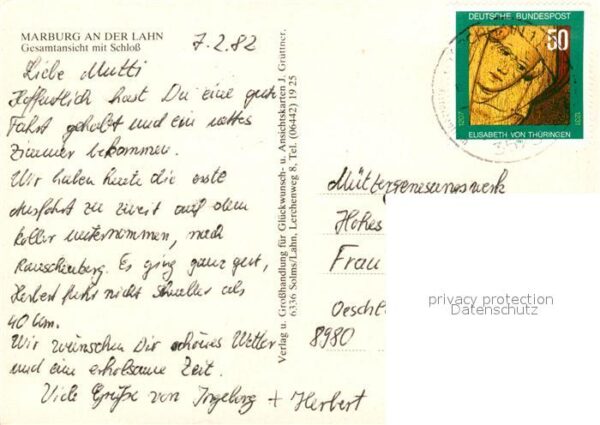 MARBURG AN DER LAHN
Gesamtansicht mit Schloß
7.2.82
Liebe Mutti
Hoffentlich hast Du eine gute
Fahrt gehabt und ein nettes
Zimmer bekommen.
Wir haben heute die erste
Ausfahrt zu zweit auf dem
Roller unternommen, nach
Rauschenberg. Es ging ganz gut,
Herbert fuhr nicht schneller als
40 km.
Wir wünschen Dir schönes Wetter
und eine erholsame Zeit.
Viele Grüße von Ingeborg + Herbert
Verlag u. Großhandlung für Glückwunsch- u. Ansichtskarten J. Grüttner,
6336 Solms/Lahn, Lerchenweg 8, Tel. (06442) 19 25
DEUTSCHE BUNDESPOST
50
1207
1231
ELISABETH VON THÜRINGEN
Müttergenesungswerk
Hohes
Frau
Oeschle
8980
privacy protection
Datenschutz